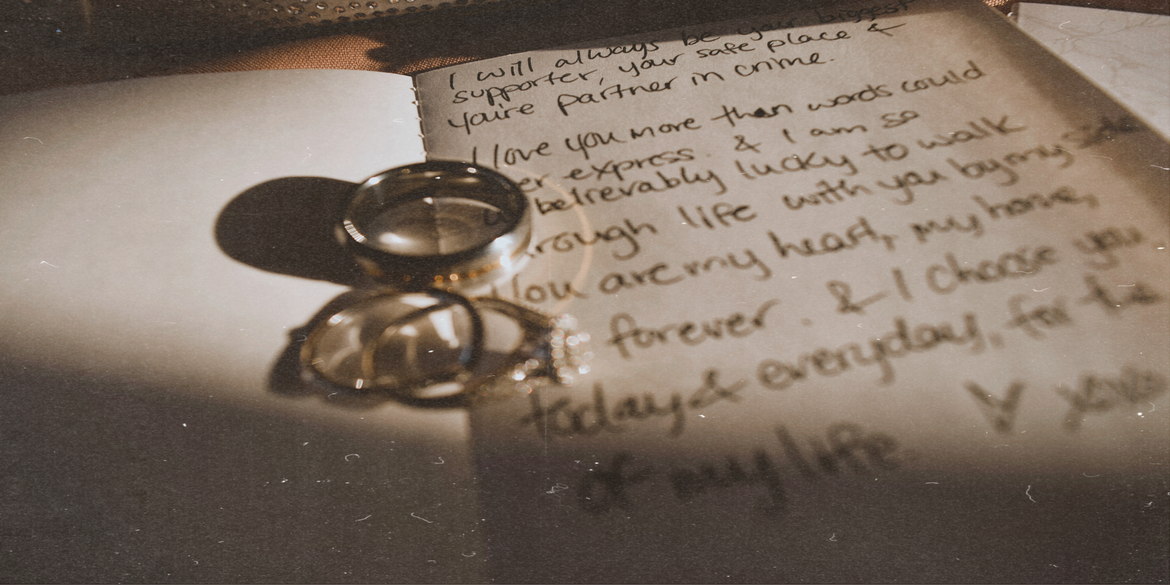 I will always be your biggest
supporter, your safe place &
you're partner in crime.
I love you more than words could
er express. & I am so
belrevably lucky to walk
rough life with you by my side
You are my heart, my home,
forever. & I choose you
today & everyday, for the
of my life.